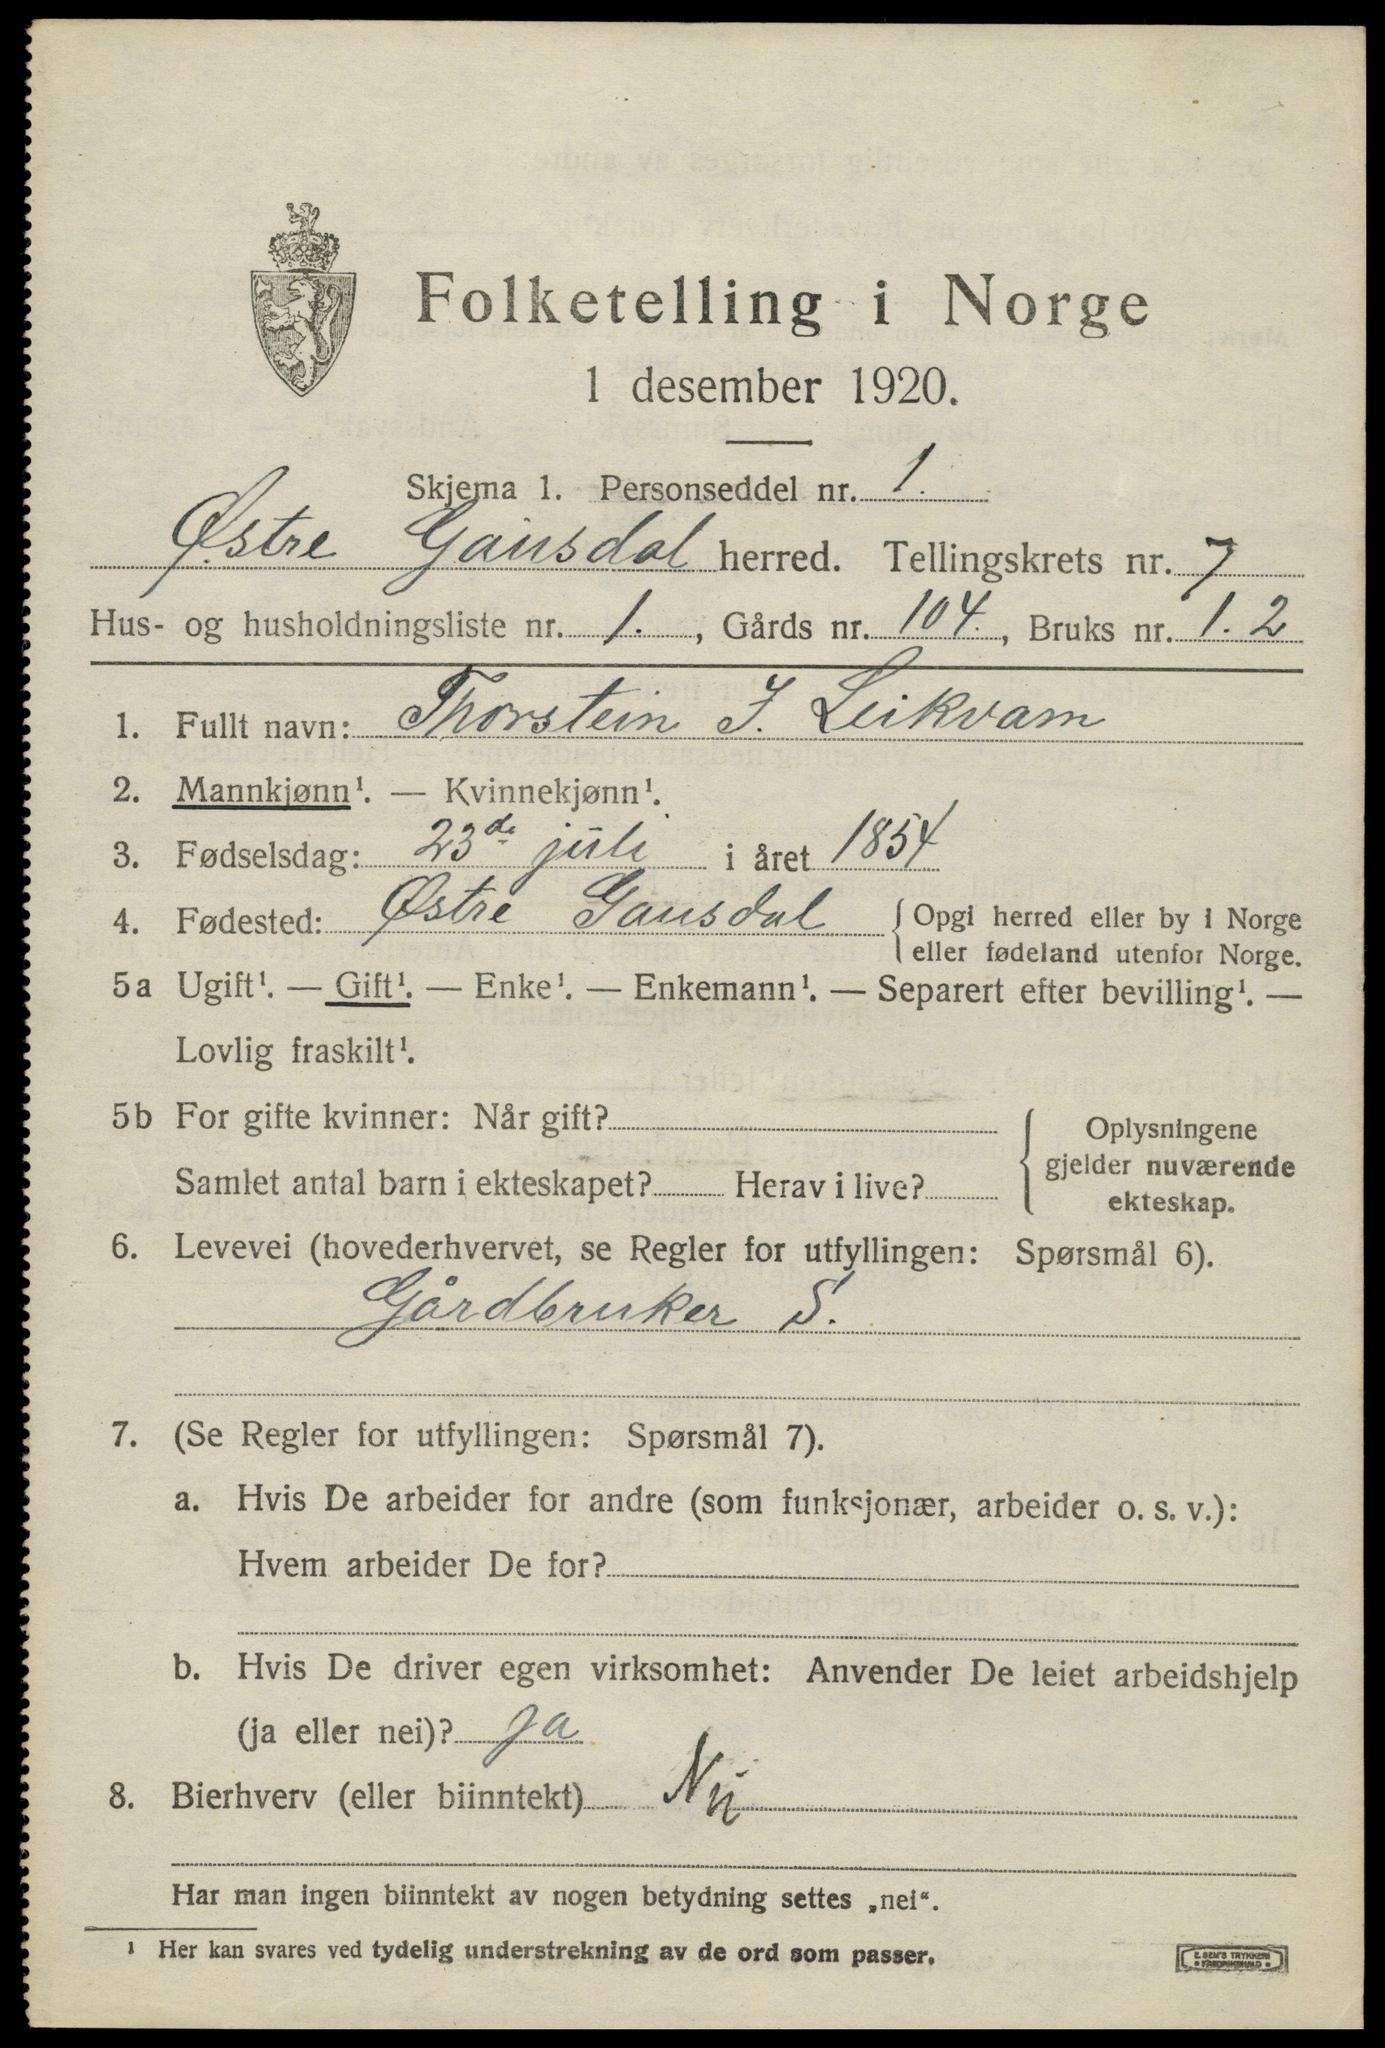 Folketelling i Norge
1 desember 1920.
Skjema 1. Personseddel nr. 1.
Østre Gausdal herred. Tellingskrets nr. 7
Hus- og husholdningsliste nr. 1., Gårds nr. 104., Bruks nr. 1. 2
1. Fullt navn: Thorstein J. Leikvam
2. Mannkjønn¹. — Kvinnekjønn¹.
3. Fødselsdag: 23de juli i året 1854
4. Fødested: Østre Gausdal { Opgi herred eller by i Norge
eller fødeland utenfor Norge.
5a Ugift¹. — Gift¹. — Enke¹. — Enkemann¹. — Separert efter bevilling¹. —
Lovlig fraskilt¹.
5b For gifte kvinner: Når gift?
Samlet antal barn i ekteskapet? Herav i live?
{ Oplysningene
gjelder nuværende
ekteskap.
6. Levevei (hovederhvervet, se Regler for utfyllingen: Spørsmål 6).
Gårdbruker S.
7. (Se Regler for utfyllingen: Spørsmål 7).
a. Hvis De arbeider for andre (som funksjonær, arbeider o. s. v.):
Hvem arbeider De for?
b. Hvis De driver egen virksomhet: Anvender De leiet arbeidshjelp
(ja eller nei)? ja
8. Bierhverv (eller biinntekt) Nei
Har man ingen biinntekt av nogen betydning settes „nei“.
¹ Her kan svares ved tydelig understrekning av de ord som passer.
E. SEM'S TRYKKERI
• FREDRIKSHALD •